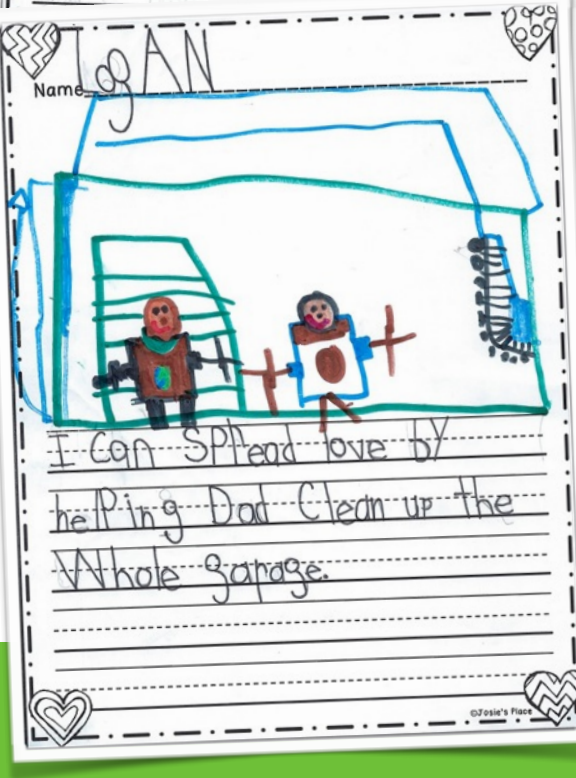 Name LogAN
I can spread love by
helping Dad Clean up the
Whole garage.
©Josie's Place